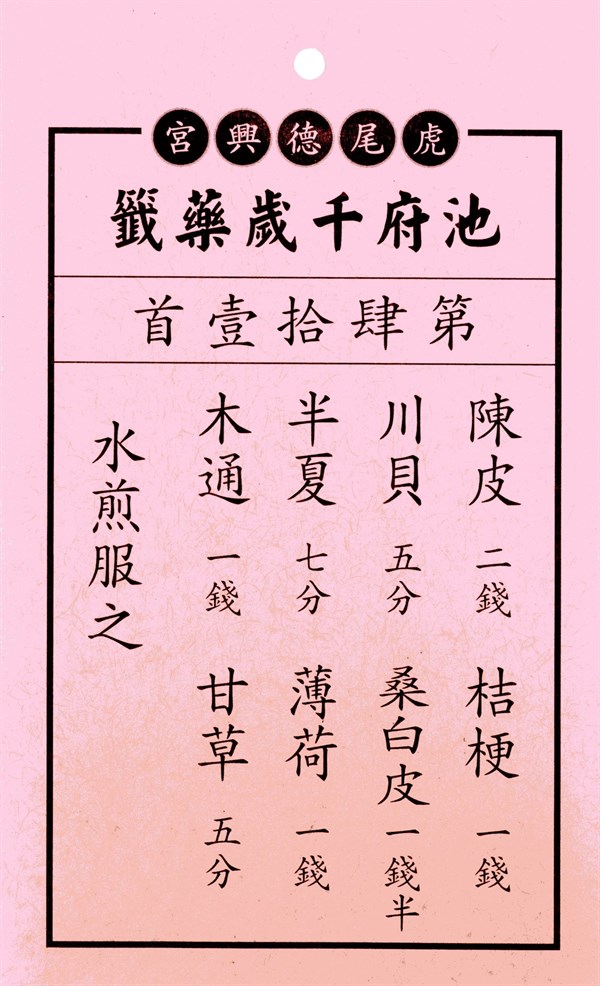 虎尾德興宮
池府千歲藥籤
第肆拾壹首
陳皮 二錢 桔梗 一錢
川貝 五分 桑白皮 一錢半
半夏 七分 薄荷 一錢
木通 一錢 甘草 五分
水煎服之